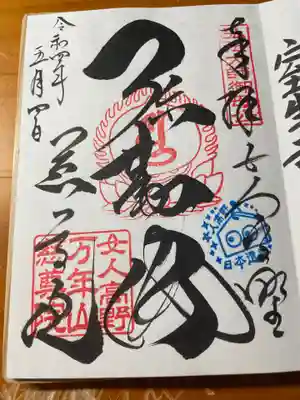 奉拝 女人高野
弥勒佛
慈尊院
令和四年
五月四日
女人高野
万年山
慈尊院
日本遺産